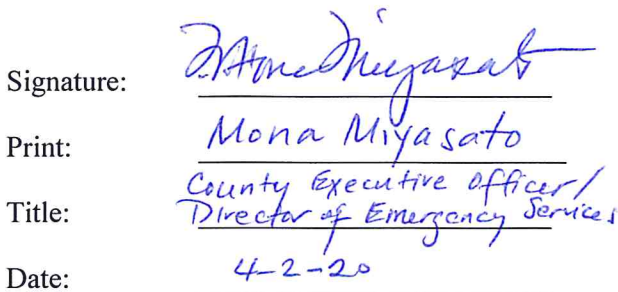 Signature: Mona Miyasato
Print: Mona Miyasato
County Executive Officer/
Title: Director of Emergency Services
Date: 4-2-20